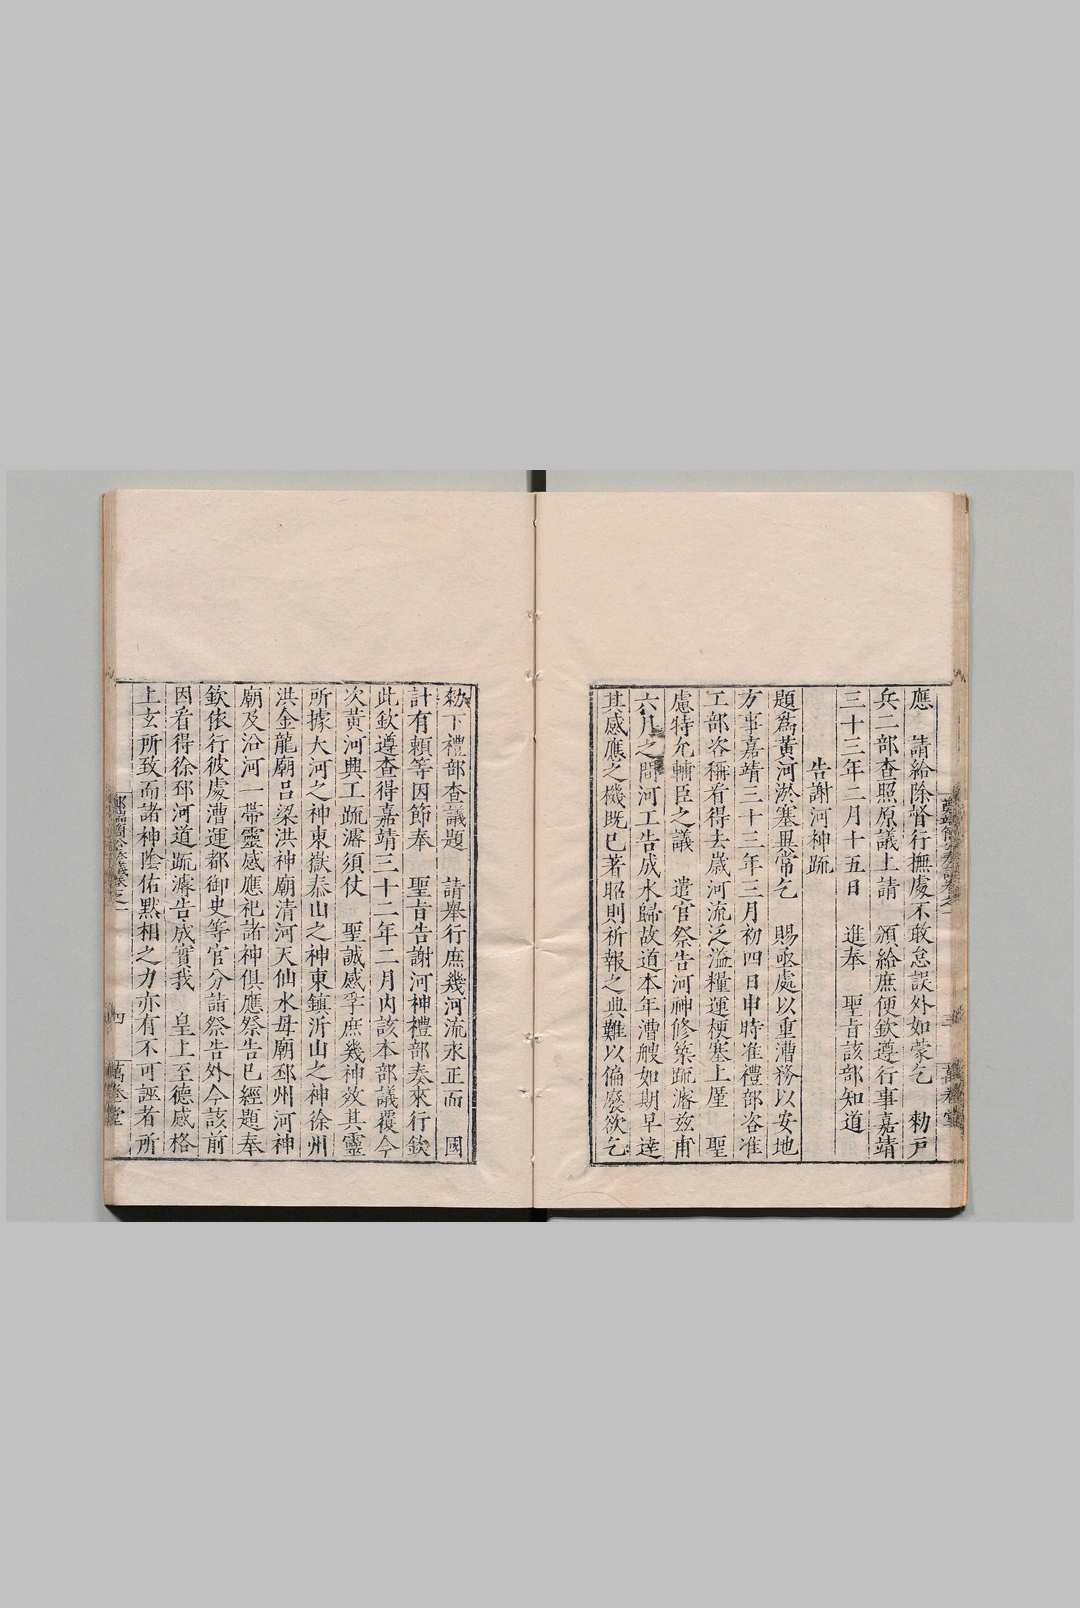 應　請給除督行撫處不敢怠誤外如蒙乞　勑戶
兵二部查照原議上請　頒給庶便欽遵行事嘉靖
三十三年二月十五日　進奉　聖旨該部知道
告謝河神疏
題爲黃河淤塞異常乞　賜亟處以重漕務以安地
方事嘉靖三十三年三月初四日申時准禮部咨准
工部咨稱看得去歲河流泛溢糧運梗塞上厪　聖
慮特允輔臣之議　遣官祭告河神修築疏濬茲甫
六月之間河工告成水歸故道本年漕艘如期早達
其感應之機既已著昭則祈報之典難以偏廢欲乞
勑下禮部查議題　請舉行庶幾河流永正而　國
計有賴等因節奉　聖旨告謝河神禮部奏來行欽
此欽遵查得嘉靖三十二年二月內該本部議覆今
次黃河興工疏濬須仗　聖誠感孚庶幾神效其靈
所據大河之神東嶽泰山之神東鎮沂山之神徐州
洪金龍廟呂梁洪神廟清河天仙水母廟邳州河神
廟及沿河一帶靈感應祀諸神俱應祭告已經題奉
欽依行彼處漕運都御史等官分詣祭告外今該前
因看得徐邳河道疏濬告成實我　皇上至德感格
上玄所致而諸神陰佑默相之力亦有不可誣者所
鄭端簡公奏議卷之一
四
萬卷堂